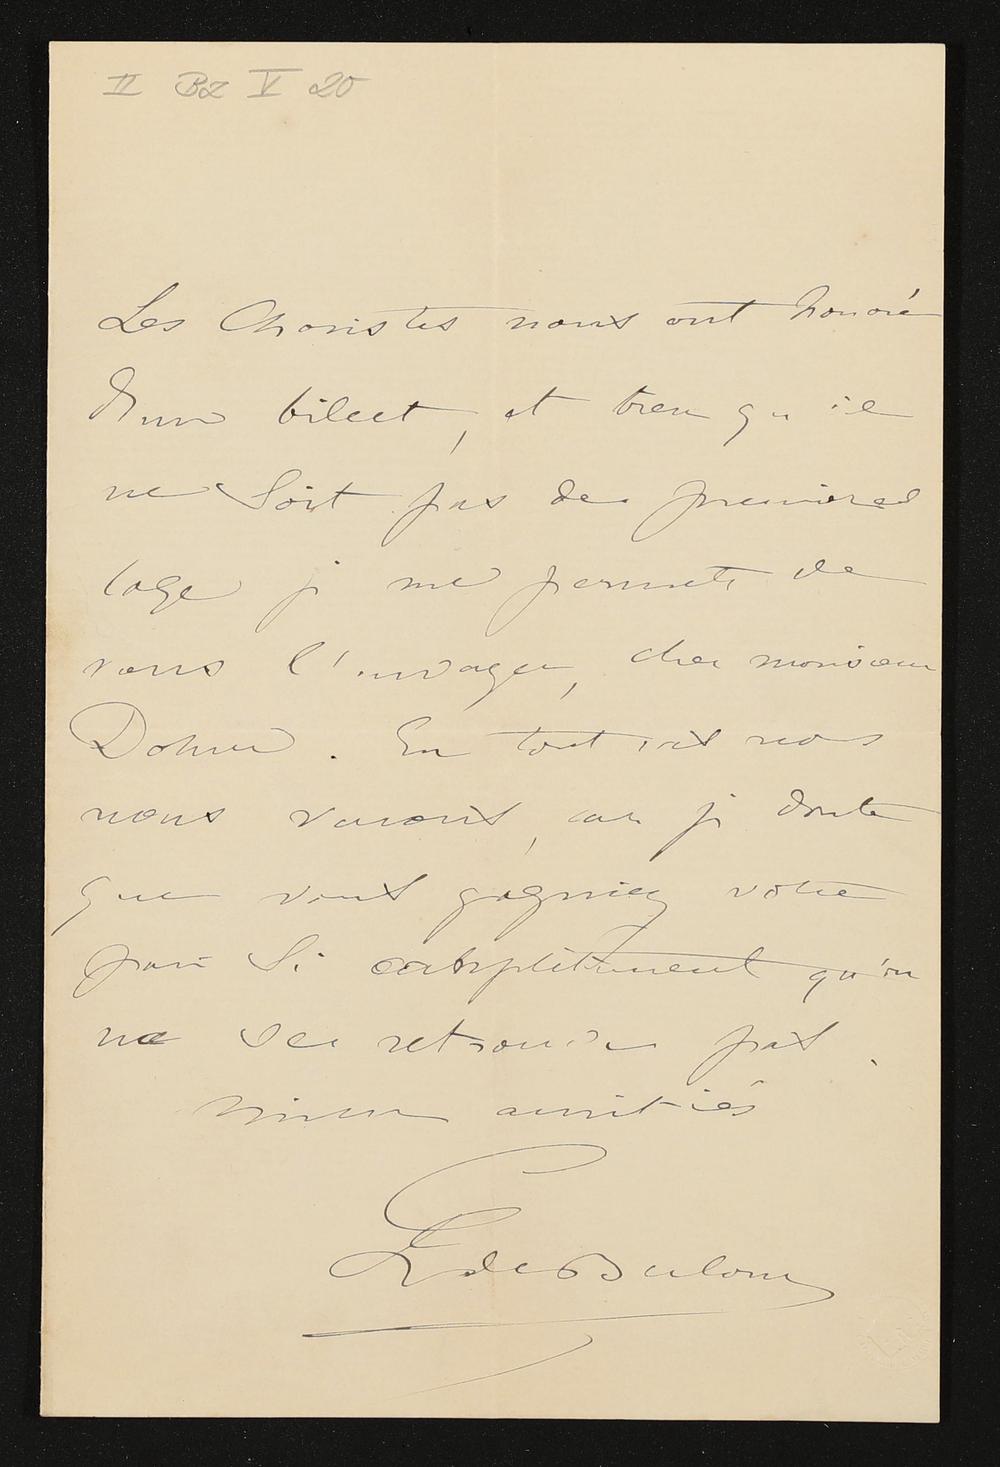 II Bz V 20
Les Choristes nous ont honoré
d'un billet, et bien qu'il
ne soit pas de première
loge je me permets de
vous l'envoyer, cher monsieur
Dohrn. En tout cas nous
nous verrons, car je doute
que vous gagniez votre
pari si complètement qu'on
ne se retrouve pas.
amitiés
de Bulow